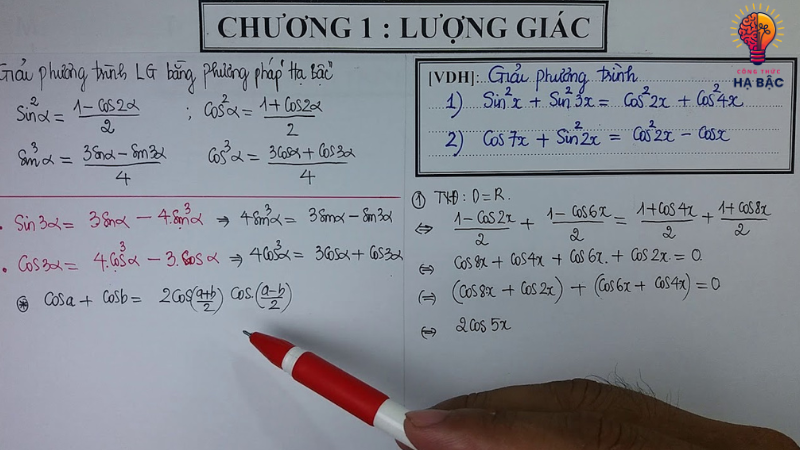 CHƯƠNG 1 : LƯỢNG GIÁC
CÔNG THỨC
HẠ BẬC
Giải phương trình LG bằng phương pháp "Hạ bậc"
Sin²α = (1 - Cos2α)/2 ; Cos²α = (1 + Cos2α)/2
Sin³α = (3Sinα - Sin3α)/4 Cos³α = (3Cosα + Cos3α)/4
• Sin3α = 3Sinα - 4.Sin³α ⇒ 4Sin³α = 3Sinα - Sin3α
• Cos3α = 4.Cos³α - 3.Cosα ⇒ 4Cos³α = 3Cosα + Cos3α
⊛ Cosa + Cosb = 2Cos((a+b)/2) Cos.((a-b)/2)
[VDH]: Giải phương trình
1) Sin²x + Sin²3x = Cos²2x + Cos²4x
2) Cos7x + Sin²2x = Cos²2x - Cosx
① TXĐ: D = R.
⇔ (1 - Cos2x)/2 + (1 - Cos6x)/2 = (1 + Cos4x)/2 + (1 + Cos8x)/2
⇔ Cos8x + Cos4x + Cos6x + Cos2x = 0.
⇔ (Cos8x + Cos2x) + (Cos6x + Cos4x) = 0
⇔ 2Cos5x